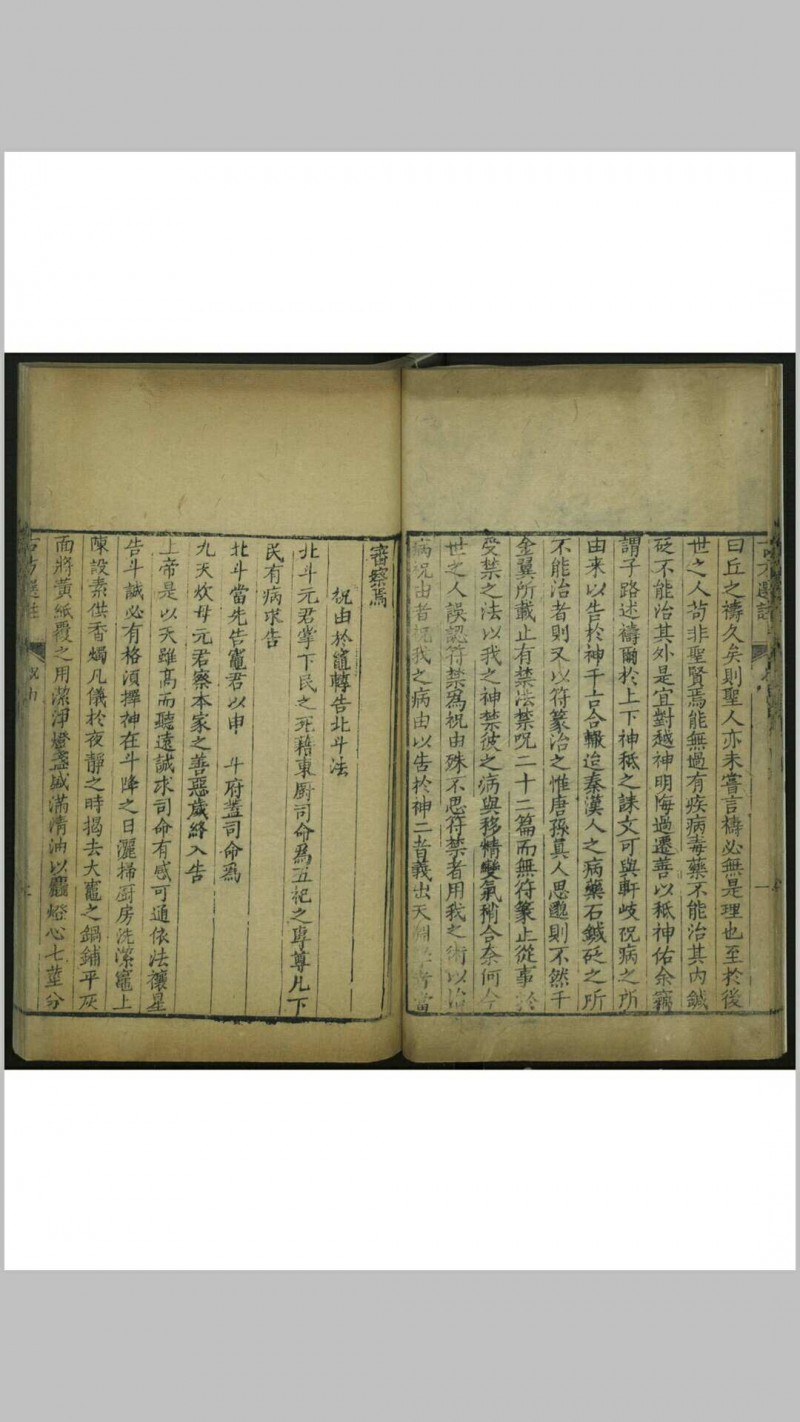 曰丘之禱久矣則聖人亦未嘗言禱必無是理也至於後
世之人苟非聖賢焉能無過有疾病毒藥不能治其內鍼
砭不能治其外是宜對越神明悔過遷善以祗神佑余竊
謂子路述禱爾於上下神祗之誄文可與軒岐祝病之所
由来以告於神千古合轍迨秦漢人之病藥石鍼砭之所
不能治者則又以符篆治之惟唐孫真人思邈則不然千
金翼所載止有禁法禁呪二十二篇而無符篆止從事於
受禁之法以我之神禁彼之病與移情變氣稍合奈何今
世之人誤認符禁為祝由殊不思符禁者用我之術以治
病祝由者祝我之病由以告於神二者義出天
審察焉
祝由於竈轉告北斗法
北斗元君掌下民之死藉東厨司命為五祀之專尊凡下
民有病求告
北斗當先告竈君以申 斗府葢司命為
九天炊母元君察本家之善惡歲終入告
上帝是以天雖高而聽遠誠求司命有感可通依法禳星
告斗誠必有格須擇神在斗降之日灑掃厨房洗潔竈上
陳設素供香燭凡儀於夜靜之時揭去大竈之鍋鋪平灰
面將黃紙覆之用潔淨燈盞盛滿清油以龘燈心七莖分
古方選註